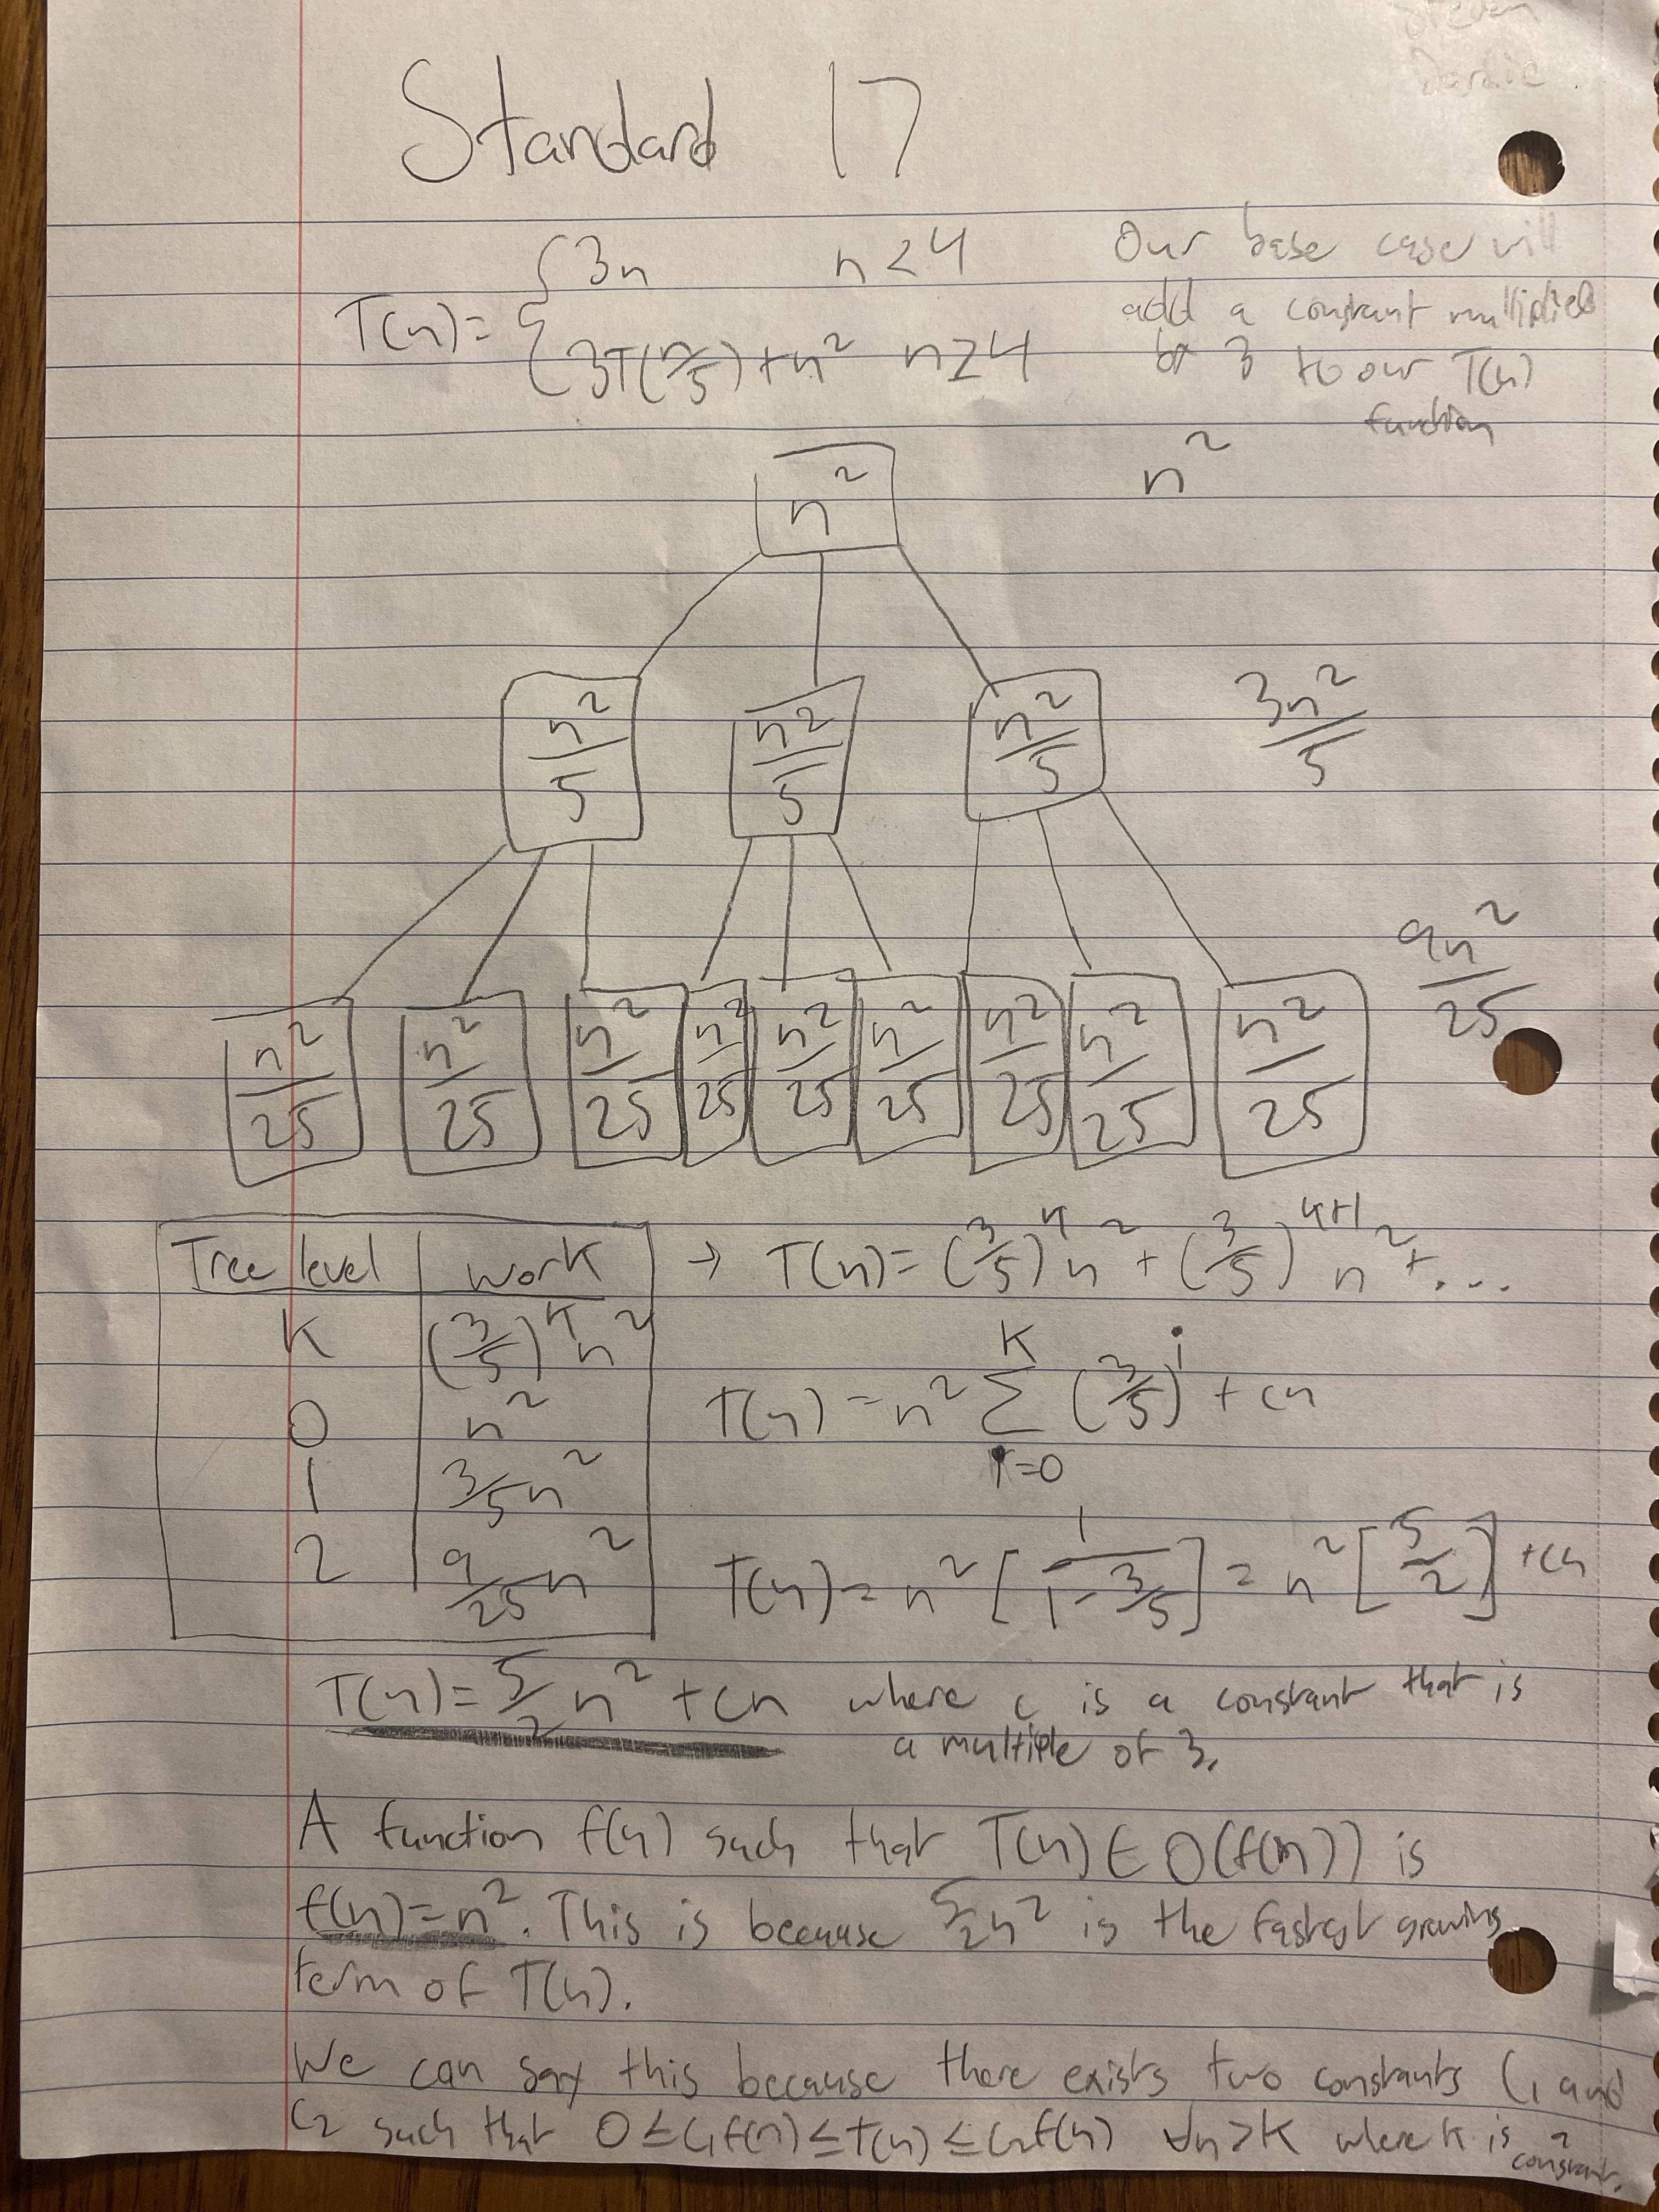 Steven
Standard 17
T(n) = { 3n n < 4
{ 3T(n/5) + n² n ≥ 4
Our base case will
add a constant multiplied
by 3 to our T(n)
function
n² n²
n²/5 n²/5 n²/5 3n²/5
n²/25 n²/25 n²/25 n²/25 n²/25 n²/25 n²/25 n²/25 n²/25 9n²/25
Tree level work → T(n) = (3/5)^k n² + (3/5)^(k+1) n² + ...
K (3/5)^k n²
0 n²
1 3/5 n²
2 9/25 n²
T(n) = n² Σ_{i=0}^{K} (3/5)^i + cn
T(n) = n² [1/(1 - 3/5)] = n² [5/2] + cn
T(n) = 5/2 n² + cn where c is a constant that is
a multiple of 3.
A function f(n) such that T(n) ∈ Θ(f(n)) is
f(n) = n². This is because 5/2 n² is the fastest growing
term of T(n).
We can say this because there exists two constants C₁ and
C₂ such that 0 ≤ C₁f(n) ≤ T(n) ≤ C₂f(n) ∀n > K where K is a
constant.